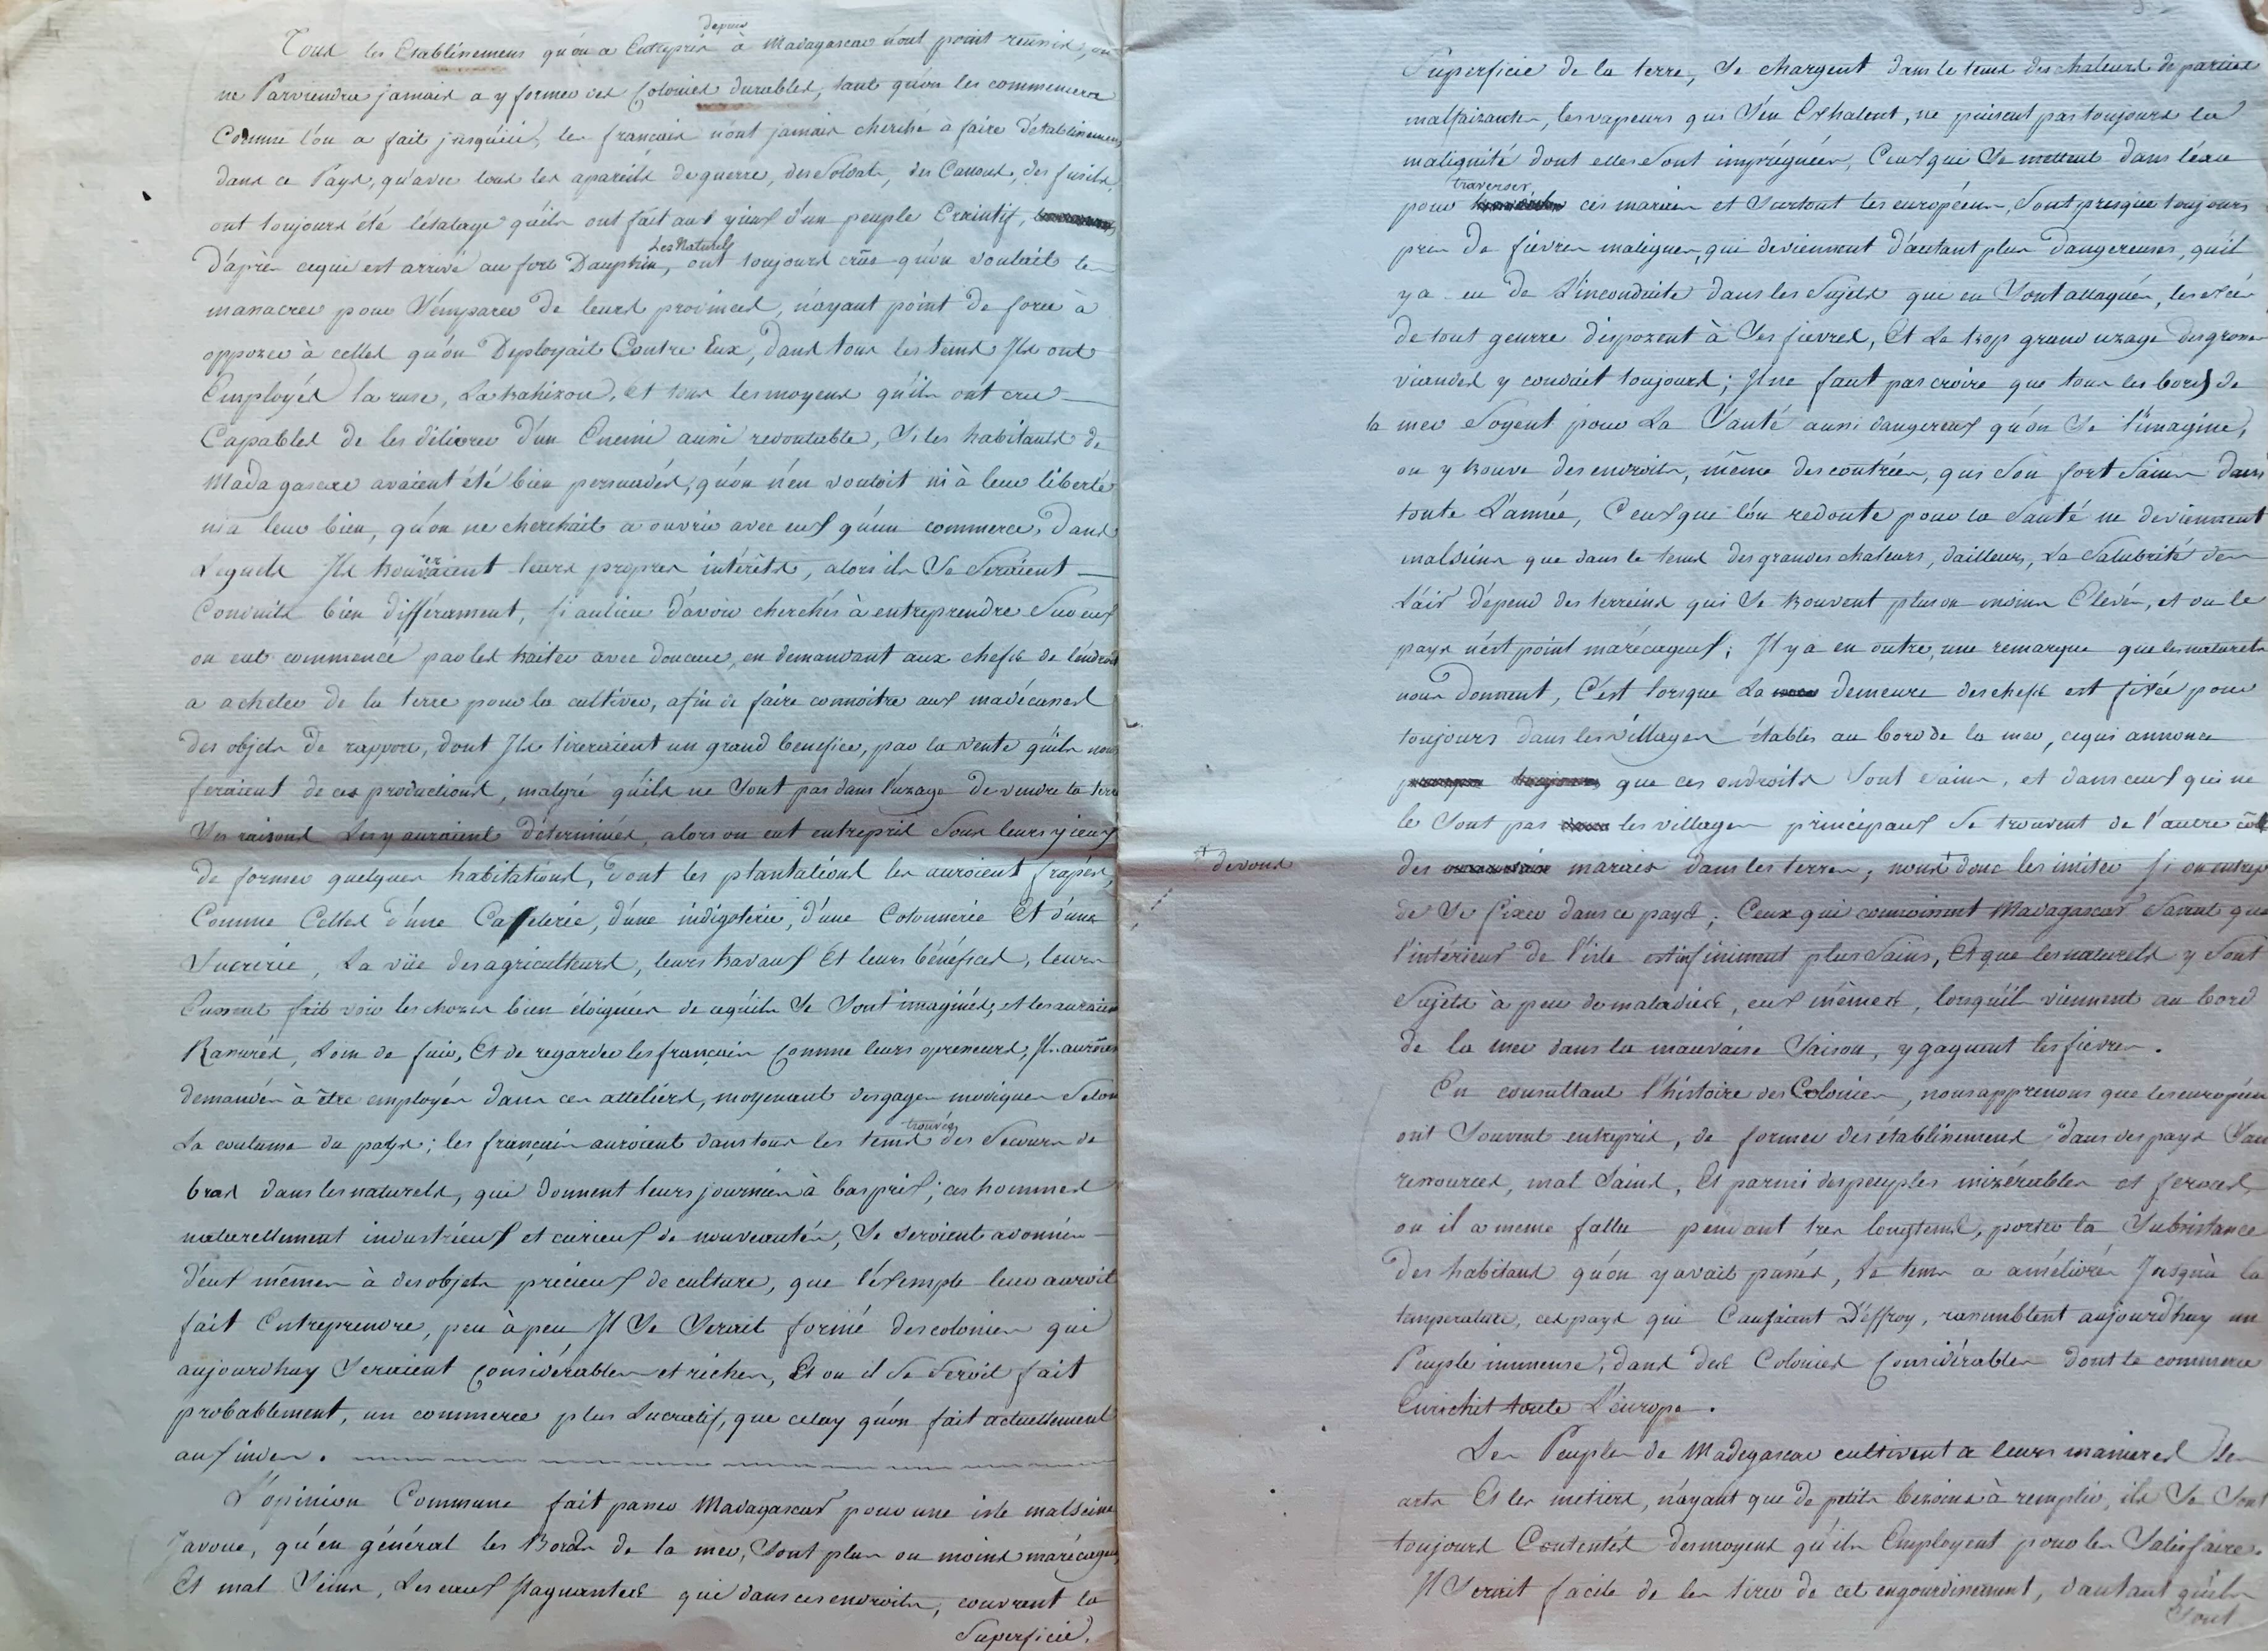 depuis
Tous les Etablissemens qu'on a Entrepris à Madagascar n'ont point reussis, on
ne Parviendra jamais a y former des Colonies durables, tant qu'on les commencera
Comme l'on a fait jusqu'ici, les francais n'ont jamais cherché à faire d'établissemens
dans ce Pays, qu'avec tous les apareils de guerre, des Soldats, des Canons, des fusils,
ont toujours été l'étalage qu'ils ont fait aux yieux d'un peuple Craintif,
Les Naturels
d'après cequi est arrivé au fort Dauphin, ont toujours crûs qu'on voulait les
massacrer pour S'emparer de leurs provinces, n'ayant point de force à
opposer à celles qu'on Deployait Contre Eux, dans tous les tems Ils ont
Employés la ruse, La trahizon, et tous les moyens qu'ils ont cru
Capables de les délivrer d'un Enemi aussi redoutable, Si les habitants de
Madagascar avaient été bien persuadés, qu'on n'en vouloit ni à leur liberté
ni a leur bien, qu'on ne cherchait a ouvrir avec eux qu'un commerce, dans
Lequels Ils trouveraient leurs propres intérêts, alors ils Se Seraient
Conduits bien différament, Si aulieu d'avoir cherchés à entreprendre Sur eux
on eut commencé par les traiter avec douceur, en demandant aux chefs de l'endroit
a acheter de la terre pour la cultiver, afin de faire connoitre aux madécasses
des objets de rapport, dont Ils tireraient un grand benefice, par la vente qu'ils nous
feraient de ces productions, malgré qu'ils ne Sont pas dans l'uzage de vendre la terre
Ses raisons Les y auraient déterminés, alors on eut entrepris Sous leurs yieux
de former quelques habitations, dont les plantations les auroient frapés,
Comme Celles d'une Cafeterie, d'une indigoterie, d'une Cotonnerie Et d'une
Sucrerie, La vüe des agriculteurs, leurs travaux Et leurs bénéfices, leurs
Eussent fait voir les choses bien éloignées de cequ'ils Se Sont imaginés, et les auraient
Rassurés, Loin de fuir, Et de regarder les français Comme leurs opresseurs, Ils auroient
demandés à être employés dans ces atteliers, moyenant des gages modiques Selon
trouvés
La coutume du pays; les français auroient dans tous les tems des Secours de
bras dans les naturels, qui donnent leurs journées à bas prix; ces hommes
naturellement industrieux et curieux de nouveautés, Se seroient adonnés
d'eux mêmes à des objets précieux de culture, que l'éxemple leur auroit
fait Entreprendre, peu à peu Il Se Serait formé des colonies qui
aujourdhuy Seraient Considérables et riches, Et ou il Se Seroit fait
probablement, un commerce plus Lucratif, que celuy qu'on fait actuellement
aux indes.
L'opinion Commune fait passer Madagascar pour une isle malseine
J'avoue, qu'en général les Bords de la mer, Sont plus ou moins marécageux
Et mal Seins, Les eaux Stagnantes qui dans ces endroits, couvrent la
Superficie.
Superficie de la terre, Se chargent dans le tems des chaleurs de parties
malfaizantes, les vapeurs qui S'en Exhalent, ne puisent pas toujours la
malignité dont elles Sont imprégnées, Ceux qui Se mettent dans l'eau
traverser
pour ces marais et Surtout les européens, Sont presque toujours
pris de fièvres malignes, qui deviennent d'autant plus dangereuses, qu'il
y a eu de L'inconduite dans les Sujets qui en Sont attaqués, les excès
de tout genre disposent à Ses fievres, Et Le trop grand uzage des grosses
viandes y conduit toujours; Il ne faut pas croire que tous les bords de
la mer Soyent pour La Santé aussi dangereux qu'on Se l'imagine,
on y trouve des endroits, même des contrées, qui Son fort Sains dans
toute L'année, Ceux que l'on redoute pour la Santé ne deviennent
malseins que dans le tems des grandes chaleurs, d'ailleurs, La Salubrité de
L'air dépend des terreins qui Se trouvent plus ou moins Elevés, et ou le
pays n'est point marécageux; Il y a en outre, une remarque que les naturels
nous donnent, C'est lorsque La demeure des chefs est fixée pour
toujours dans les Villages établis au bord de la mer, cequi annonce
que ces endroits Sont Sains, et dans ceux qui ne
le Sont pas les villages principaux Se trouvent de l'autre côté
des marais dans les terres, nous + donc les imiter Si on entrep
+ devons
de Se fixer dans ce pays; Ceux qui connoissent Madagascar Savent que
l'intérieur de l'isle est infiniment plus Sains, Et que les naturels y Sont
Sujets à peu de maladies, eux mêmes, lorsqu'ils viennent au bord
de la mer dans la mauvaise Saison, y gagnent les fievres.
En consultant l'histoire des Colonies, nous apprenons que les européens
ont Souvent entrepris, de former des établissemens, dans des pays Sans
ressources, mal Sains, Et parmi des peuples mizérables et feroces,
ou il a meme fallu pendant tres longtems, porter la Subsistance
des habitans qu'on y avait passés, Le tems a amélioré Jusqu'à la
température, ces pays qui Causaient D'effroy, rassemblent aujourdhuy un
Peuple immense, dans des Colonies Considérables dont le commerce
Enrichit toute L'europe.
Les Peuples de Madegascar cultivent a leurs manieres les
arts Et les metiers, n'ayant que de petits besoins à remplir, ils Se Sont
toujours Contentés des moyens qu'ils Employent pour les Satisfaire.
Il Serait facile de les tirer de cet engourdissement, d'autant qu'ils
Sont